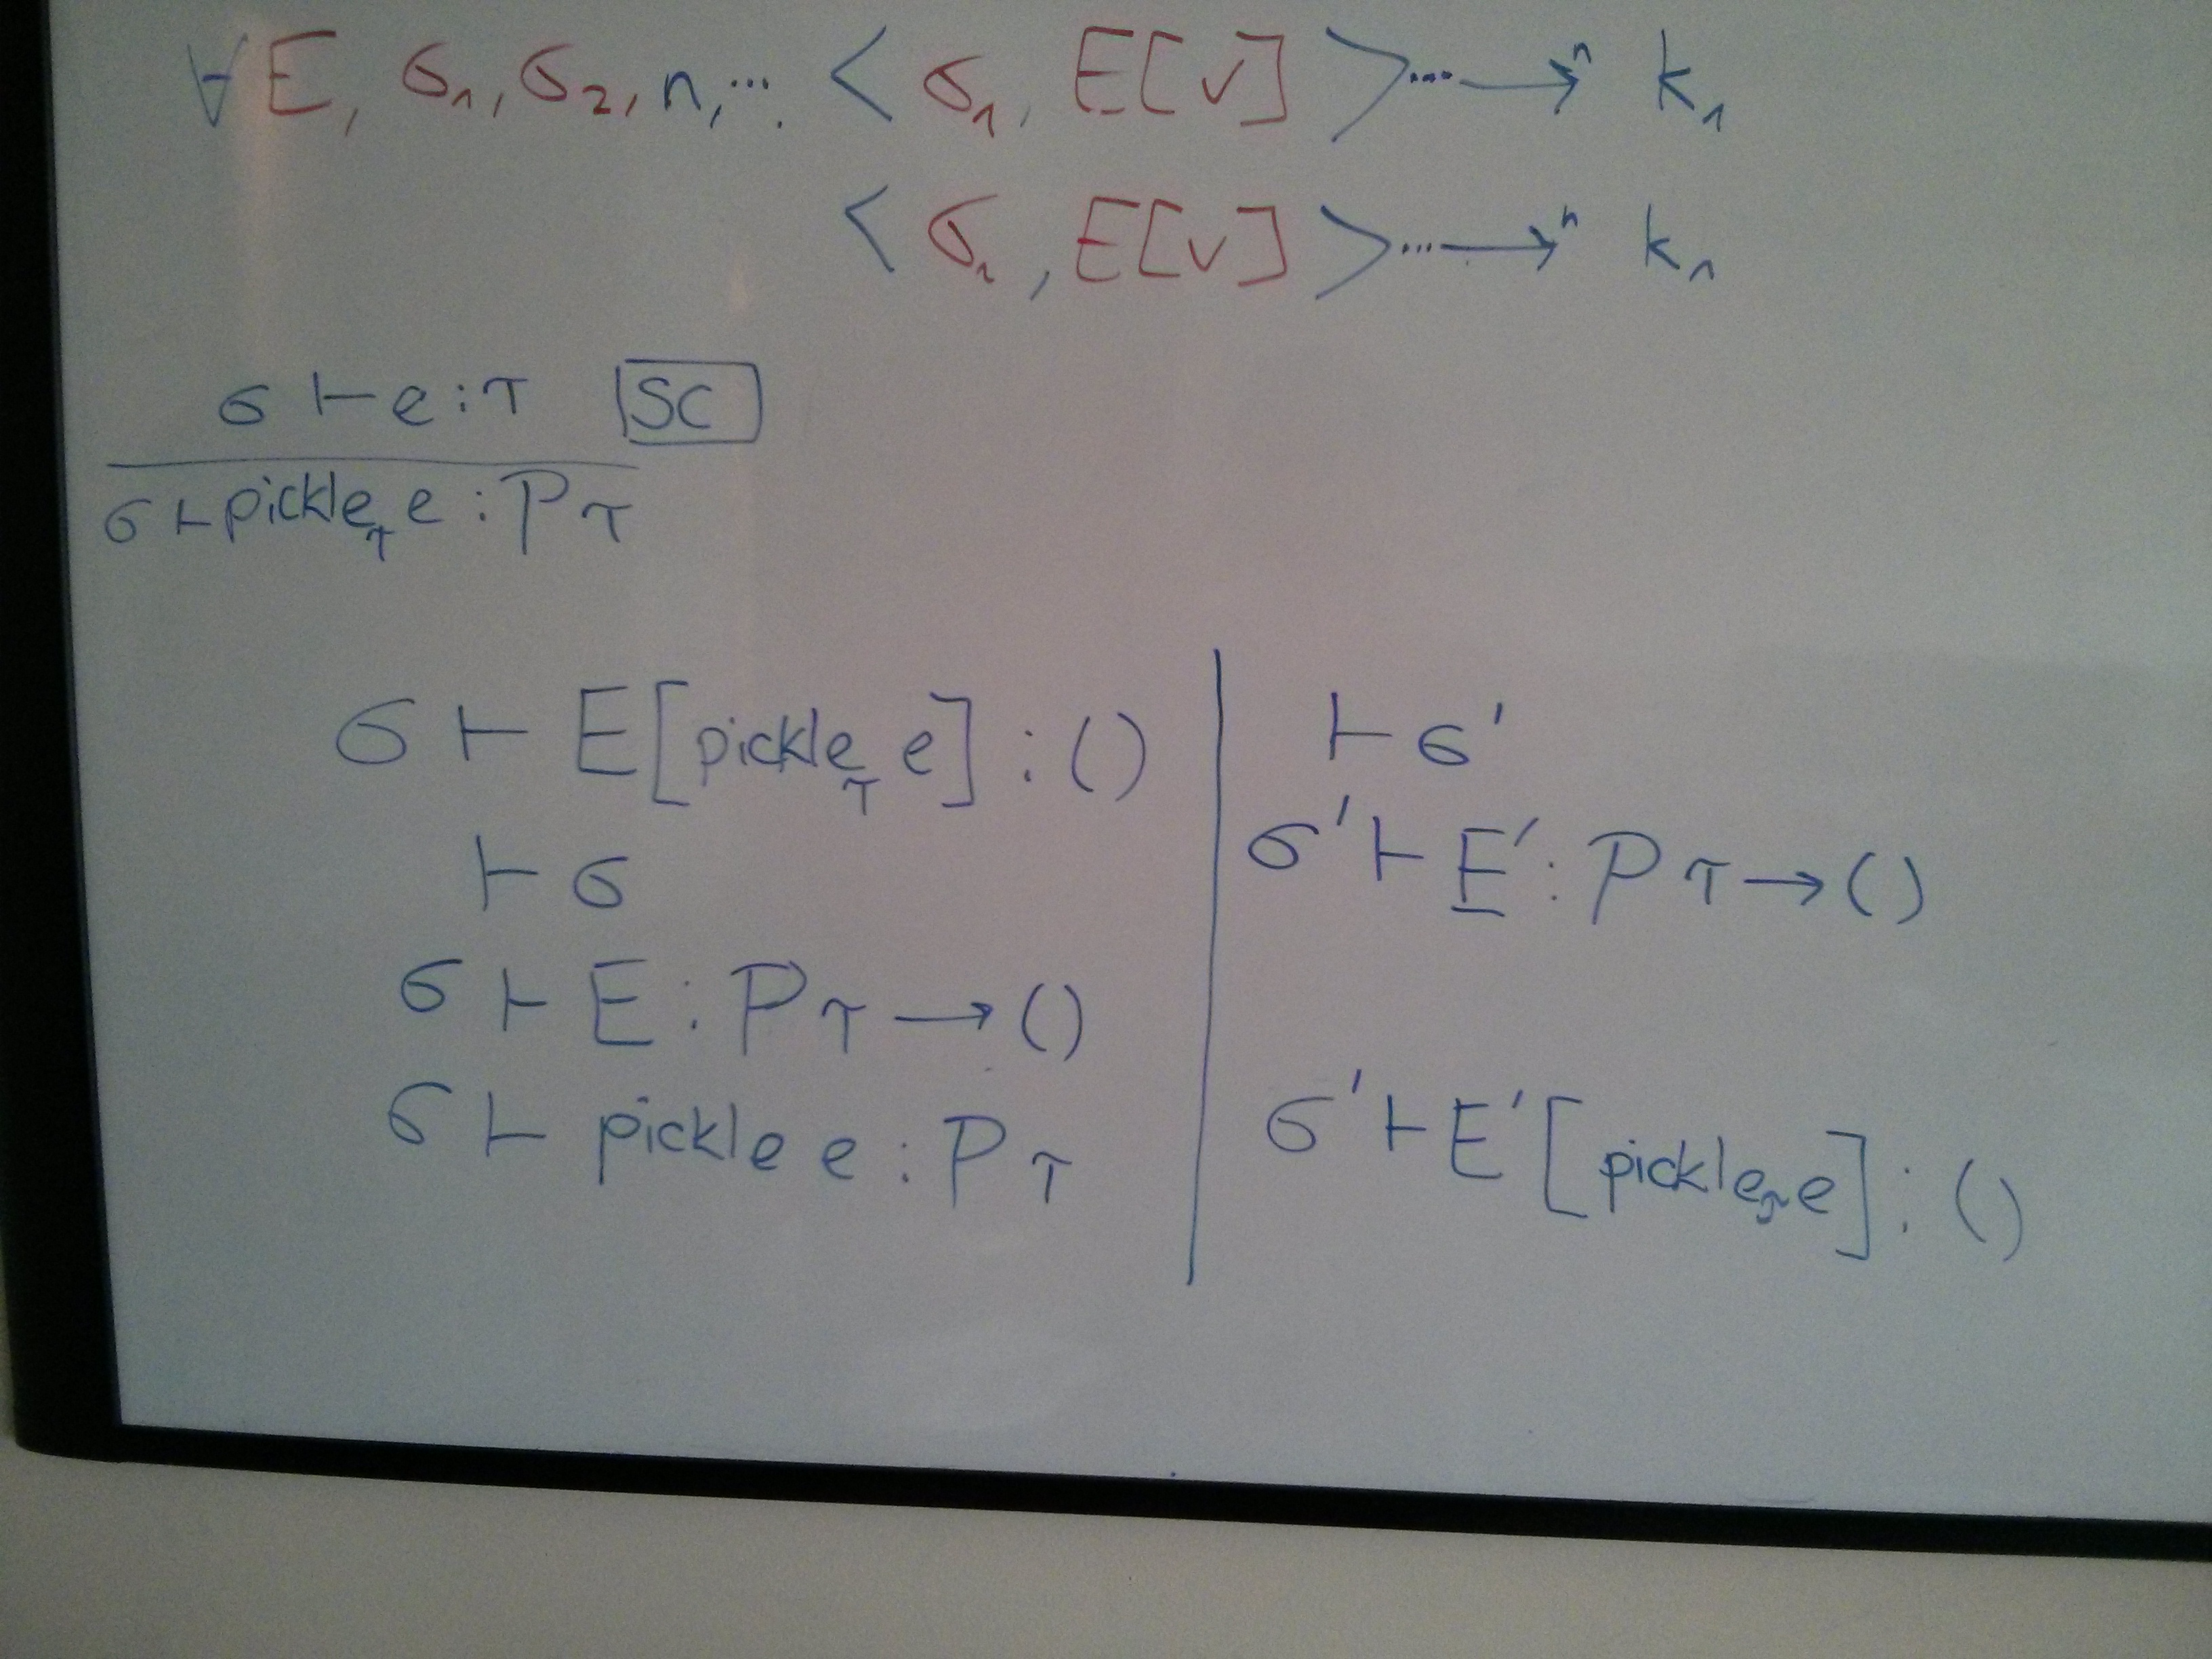 ∀ E, σ₁, σ₂, n, ... < σ₁, E[v] > ... →ⁿ k₁
< σ₂, E[v] > ... →ⁿ k₁
σ ⊢ e : τ [SC]
σ ⊢ pickle_τ e : P τ
σ ⊢ E[pickle_τ e] : ()
⊢ σ
σ ⊢ E : P τ → ()
σ ⊢ pickle e : P τ
⊢ σ'
σ' ⊢ E' : P τ → ()
σ' ⊢ E'[pickle_τ e] : ()